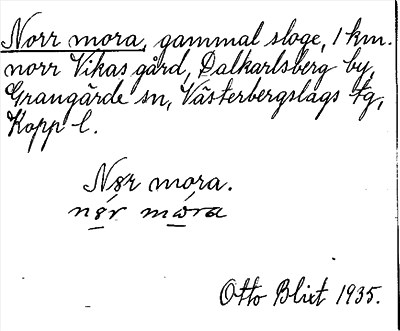 Norr mora, gammal sloge, 1 km.
norr Vikas gård, Dalkarlsberg by,
Grangärde sn, Västerbergslags tg,
Kopp l.
Nør mora.
nør mora
Otto Blixt 1935.